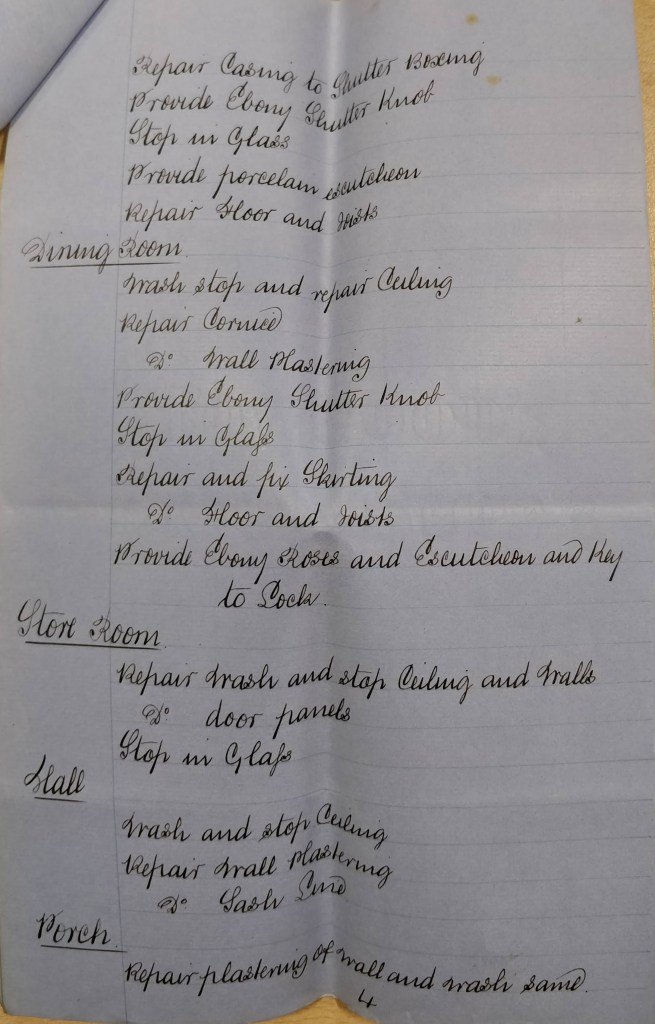 Repair Casing to Shutter Boxing
Provide Ebony Shutter Knob
Stop in Glass
Provide porcelain escutcheon
Repair Floor and Joists
Dining Room
Wash stop and repair Ceiling
Repair Cornice
Do Wall Plastering
Provide Ebony Shutter Knob
Stop in Glaſs
Repair and fix Skirting
Do Floor and Joists
Provide Ebony Roses and Escutcheon and Key
to Lock.
Store Room
Repair Wash and stop Ceiling and Walls
Do door panels
Stop in Glaſs
Hall
Wash and stop Ceiling
Repair Wall Plastering
Do Sash Line
Porch
Repair plastering of Wall and Wash same
4